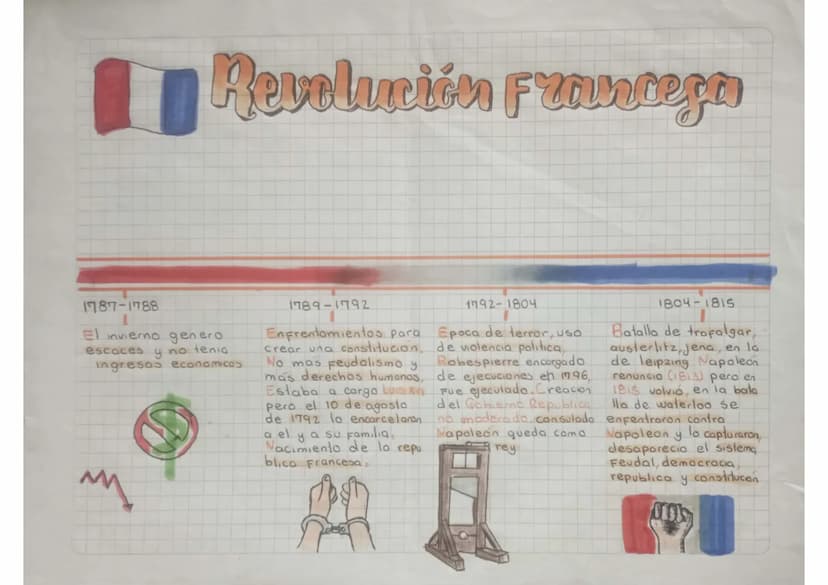 Revolución Francesa
1787-1788
El invierno genero
escaces y no tenia
ingresos economicos
1789-1792
Enfrentamientos para
crear una constitución.
No mas feudalismo y
más derechos humanos,
Estaba a cargo
pero el 10 de agosto
de 1792 lo encarcelaron
a el y a su familia.
Nacimiento de la repu
blica Francesa.
1792-1804
Epoca de terror, uso
de violencia politica,
Robespierre encargado
de ejecuciones en 1796,
Fue ejecutado. Creacion
del Gobierno Republica
no moderado consulado
Napoleón queda como
rey
1804-1815
Batalla de trafalgar,
austerlitz, jena, en la
de leipzing Napoleón
renuncio (1813) pero en
1815 volvió, en la bata
lla de waterloo se
enfrentaron contra
Napoleón y lo capturaron,
desaparecio el sistema
Feudal, democracia,
republica y constitucón